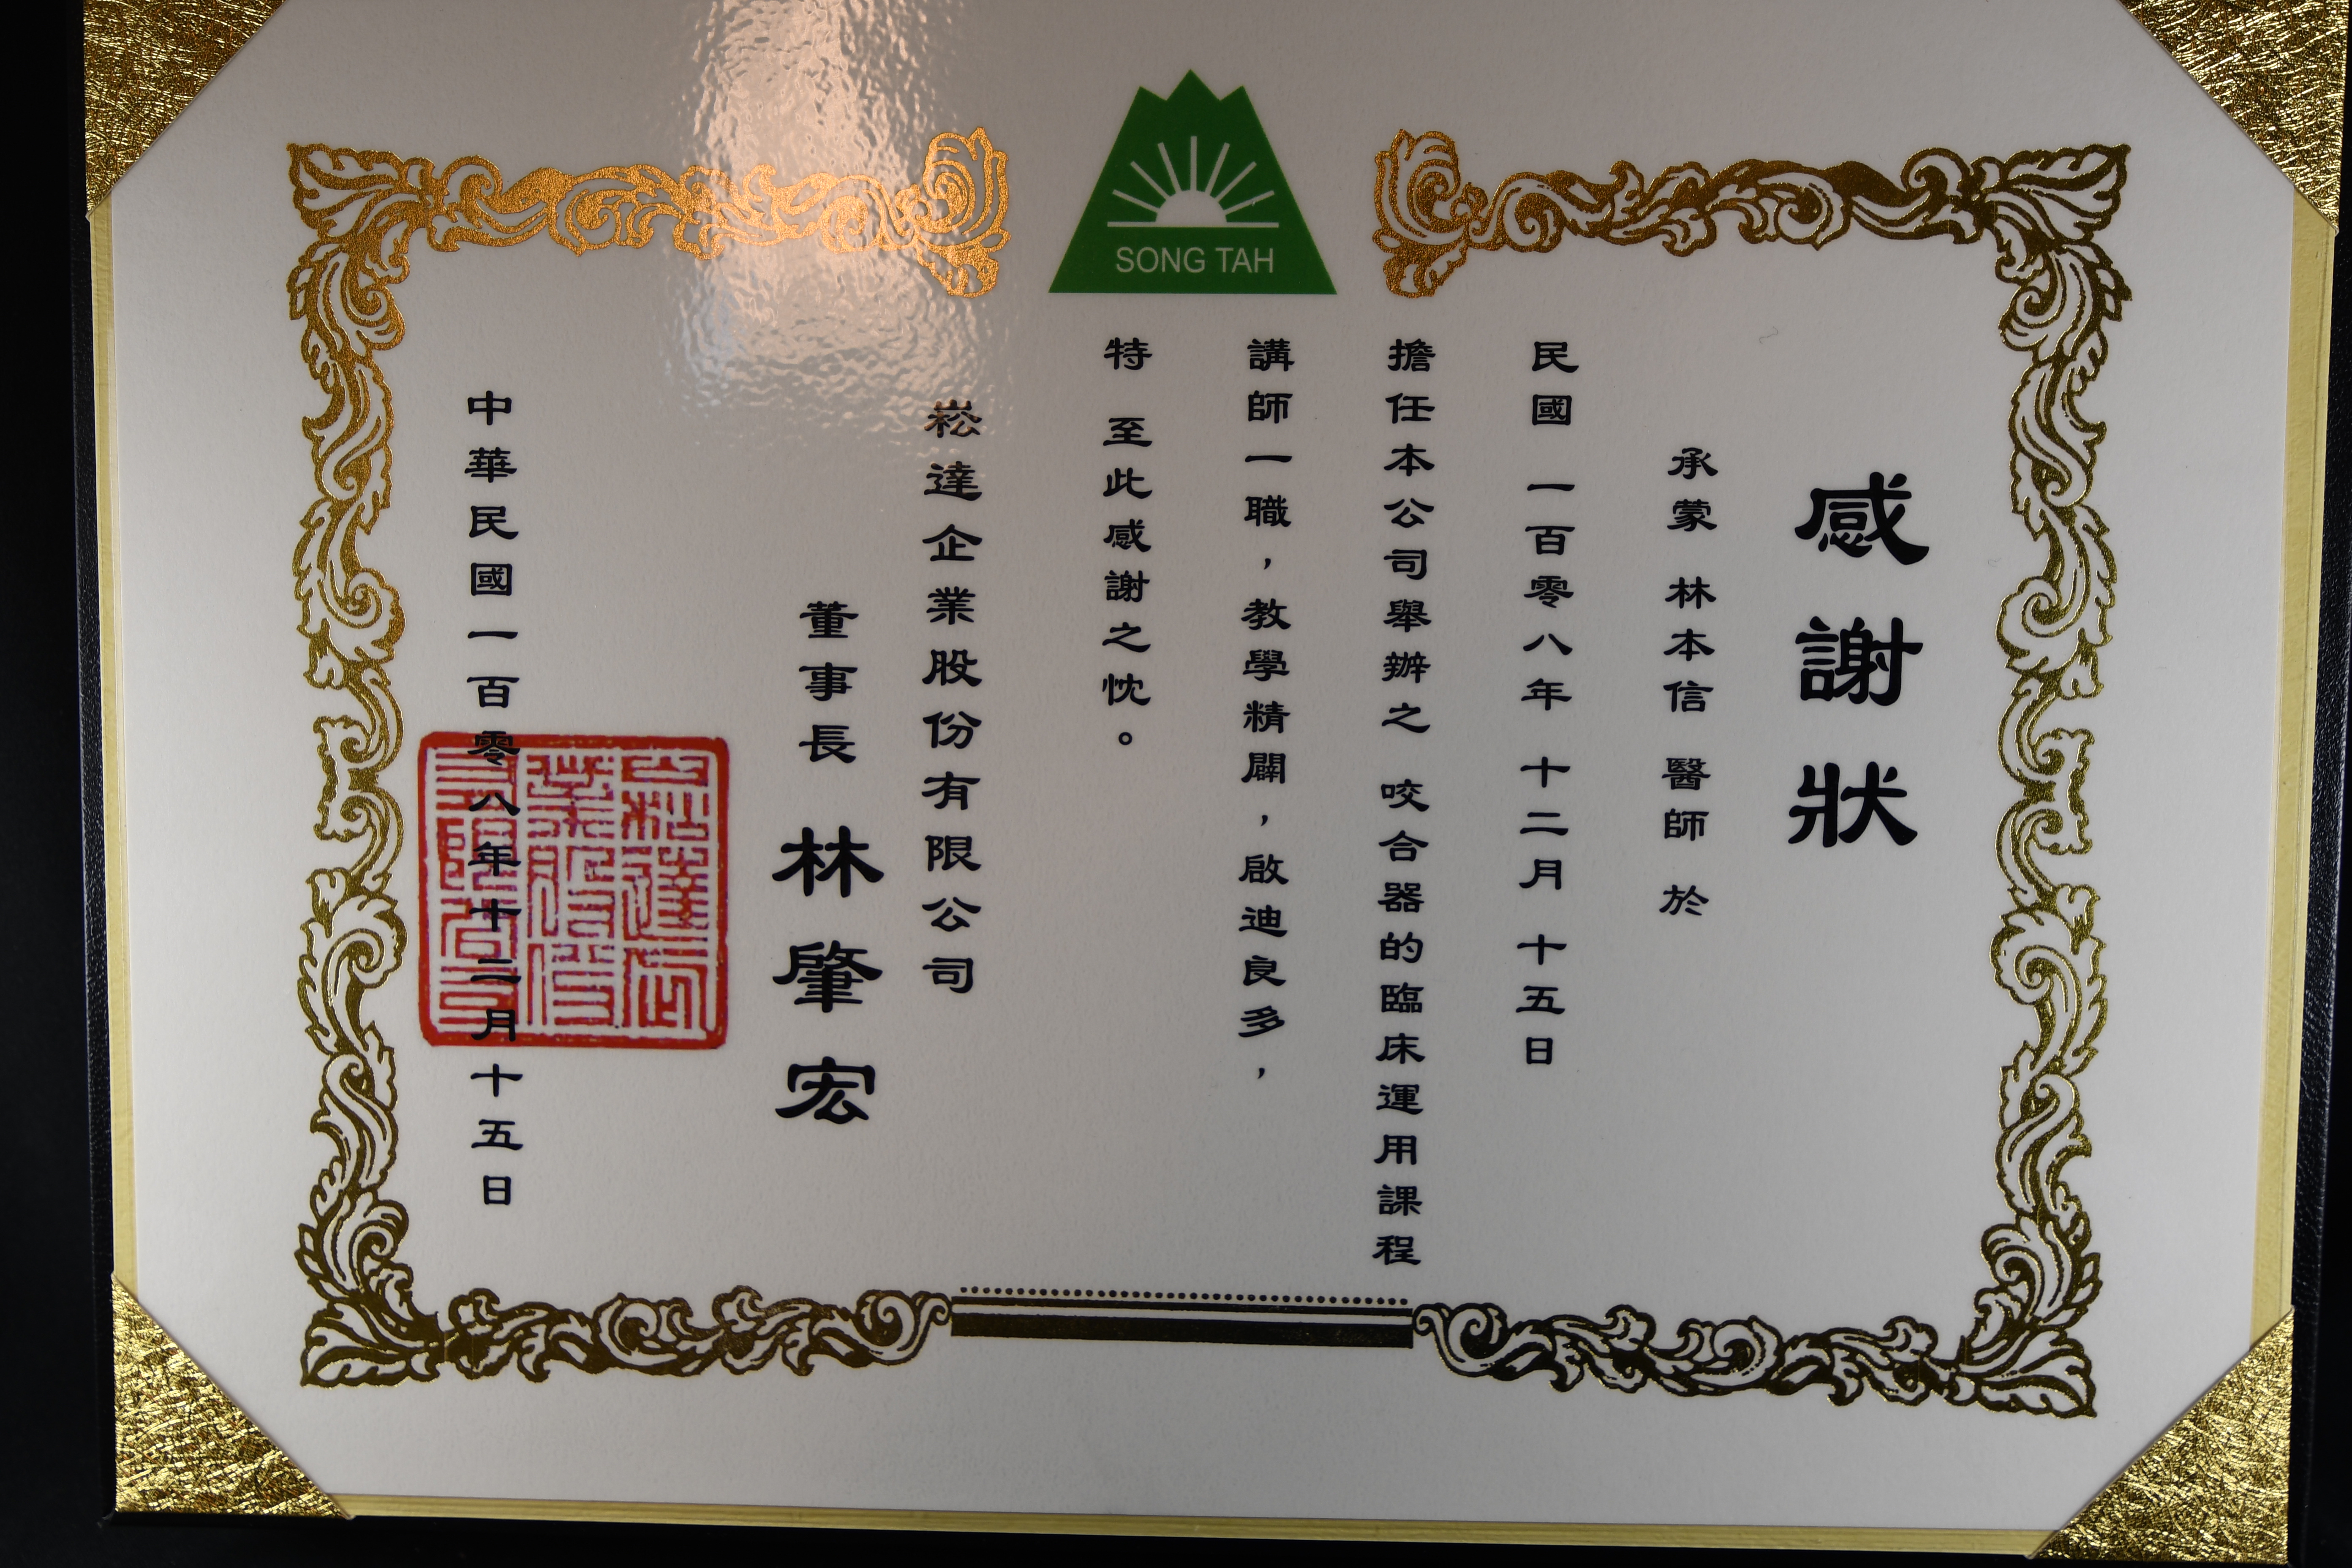 SONG TAH
感謝狀
承蒙 林本信 醫師 於
民國 一百零八年 十二月 十五日
擔任本公司舉辦之 咬合器的臨床運用課程
講師一職，教學精闢，啟迪良多，
特 至此感謝之忱。
崧達企業股份有限公司
董事長 林肇宏
中華民國一百零八年十二月十五日